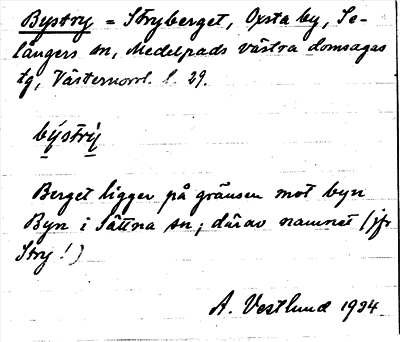 Bystry = Stryberget, Oxsta by, Se-
långers sn, Medelpads västra domsagas
tg, Västernorrl. l. 29.
býstrỳ
Berget ligger på gränsen mot byn
Byn i Sättna sn; därav namnet (jfr
Stry!)
A. Vestlund 1934